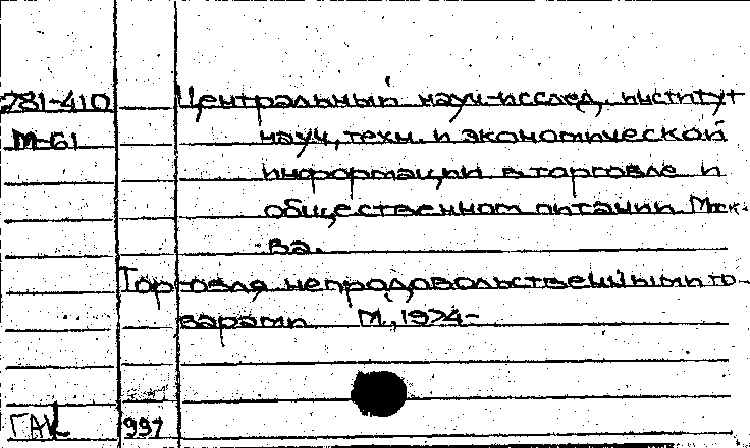 281-410 Центральный науч-исслед. институт
М-61 науч, техн. и экономической
информации в торговле и
общественном питании Моск-
ва.
Торговля непродовольственными то-
варами М., 1974-
ГАК 997